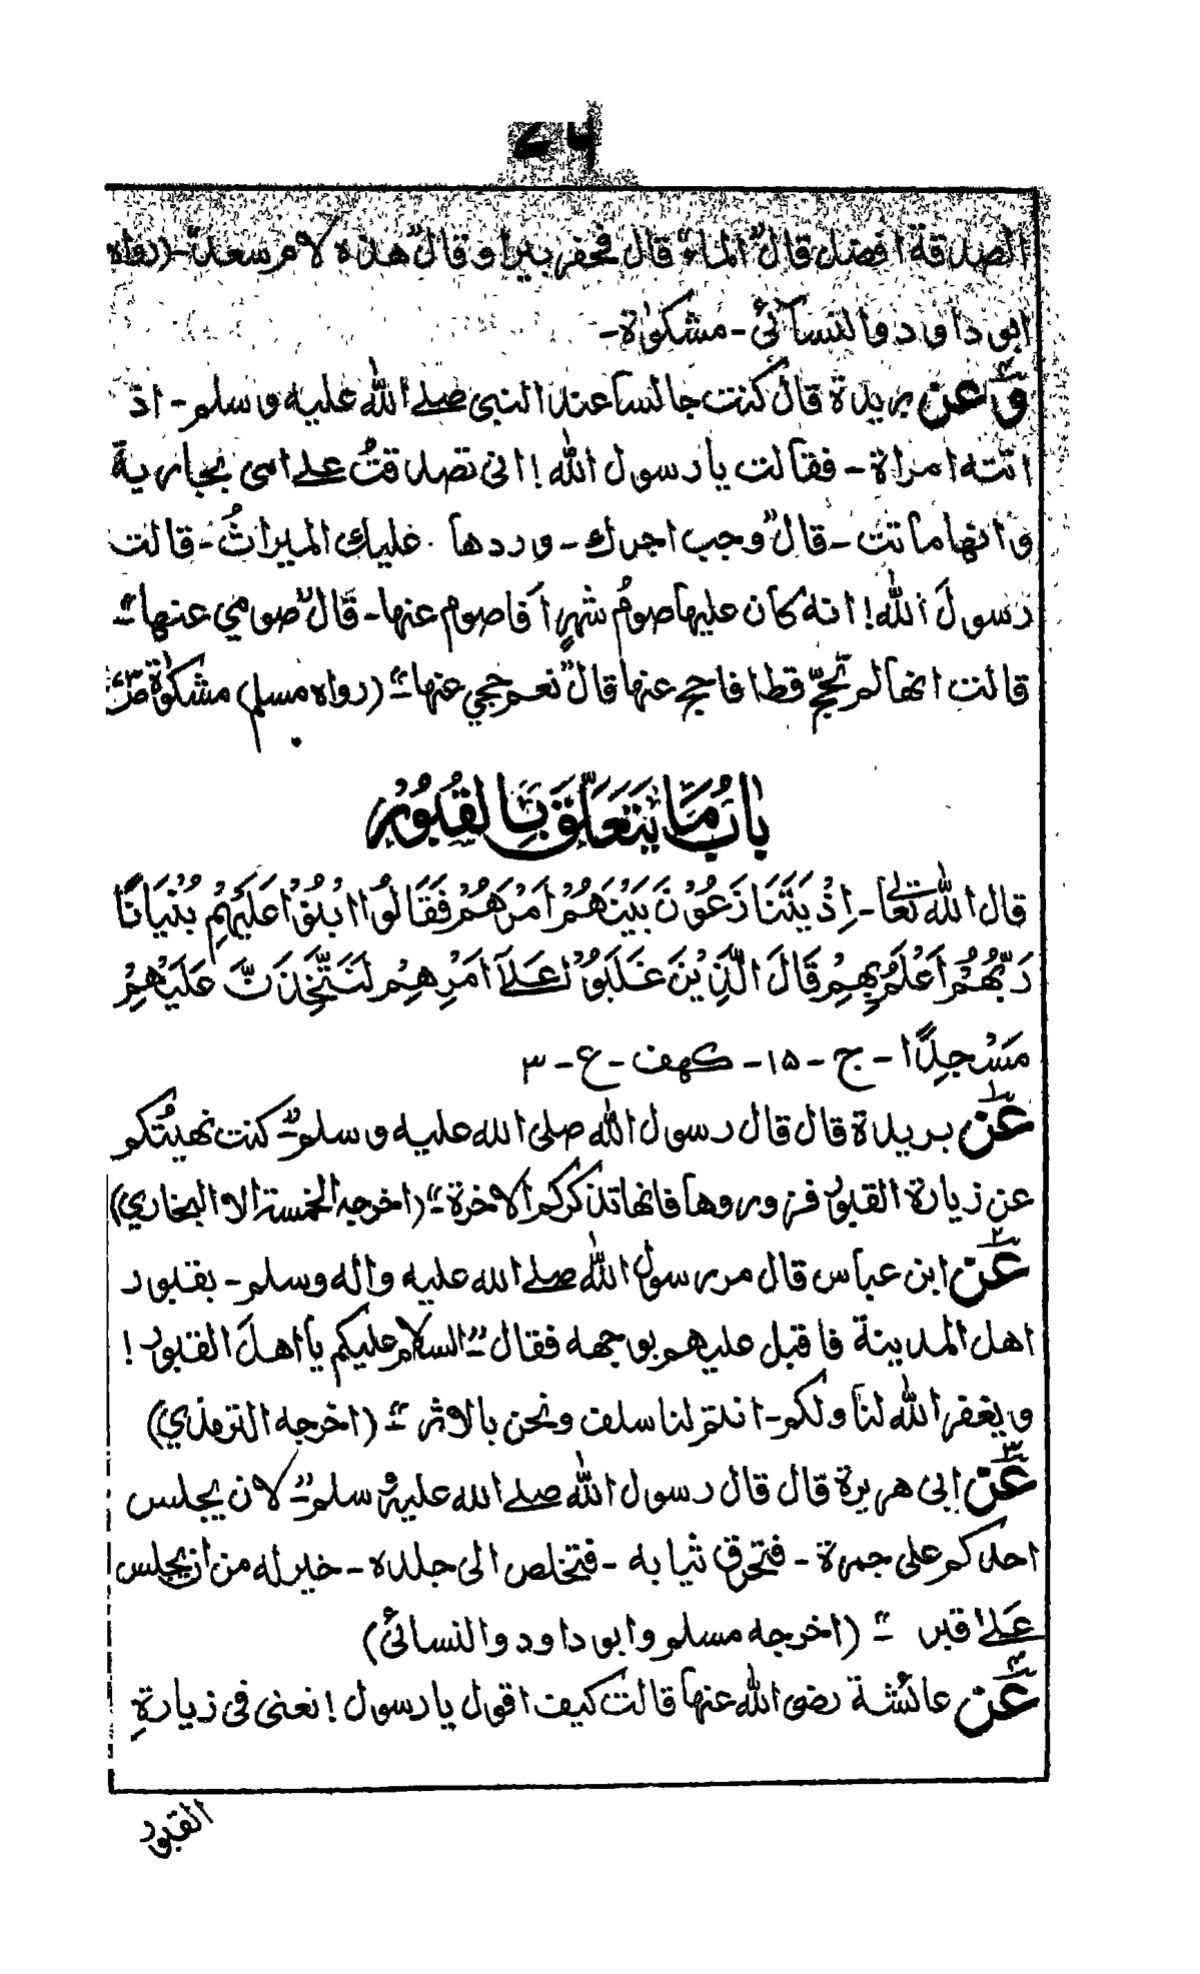 الصدقة افضل قال "الماء" قال فحفر بيرا وقال "هذه لام سعد" - (رواه
ابو داود والنسآئي - مشكوٰة -
وعن بريدة قال كنت جالسا عند النبى صلے الله عليه وسلم - اذ
اتته امراة - فقالت يا رسول الله! انى تصدقتُ علے امى بجارية
وانها ماتت - قال "وجب اجرك - وردها عليك الميراثُ - قالت
رسولَ الله! انه كان عليها صومُ شهرٍ أفاصوم عنها - قال "صومي عنها" -
قالت انها لم تحجّ قط افاحج عنها قال "نعم حجي عنها" - (رواه مسلم) مشكوٰة
بابُ مَا يَتَعَلَّقَ بِالقُبُوْرِ
قال الله تعالٰے - اِذْ يَتَنَازَعُوْنَ بَيْنَهُمْ اَمْرَهُمْ فَقَالُوا ابْنُوْا عَلَيْهِمْ بُنْيَانًا
رَبُّهُمْ اَعْلَمُ بِهِمْ قَالَ الَّذِيْنَ غَلَبُوْا عَلٰٓے اَمْرِهِمْ لَنَتَّخِذَنَّ عَلَيْهِمْ
مَسْجِدًا - ج - ۱۵ - كهف - ع - ۳
۱ عن بريدة قال قال رسول الله صلى الله عليه وسلم "كنت نهيتُكم
عن زيارة القبور فزوروها فانها تذكركم الاخرة" - (اخرجه الخمسة الا البخاري)
۲ عن ابن عباس قال مر رسول الله صلے الله عليه واله وسلم - بقبور
اهل المدينة فاقبل عليهم بوجهه فقال "السلام عليكم يا اهلَ القبور!
ويغفر الله لنا ولكم - انتم لنا سلف ونحن بالاثر" - (اخرجه الترمذي)
۳ عن ابى هريرة قال قال رسول الله صلے الله عليه وسلم "لان يجلس
احدكم على جمرة - فتحرق ثيابه - فتخلص الى جلده - خير له من ان يجلس
عَلے قبر" - (اخرجه مسلم وابو داود والنسائى)
۴ عن عائشة رضى الله عنها قالت كيف اقول يا رسول! نعنى فى زيارةِ
القبور